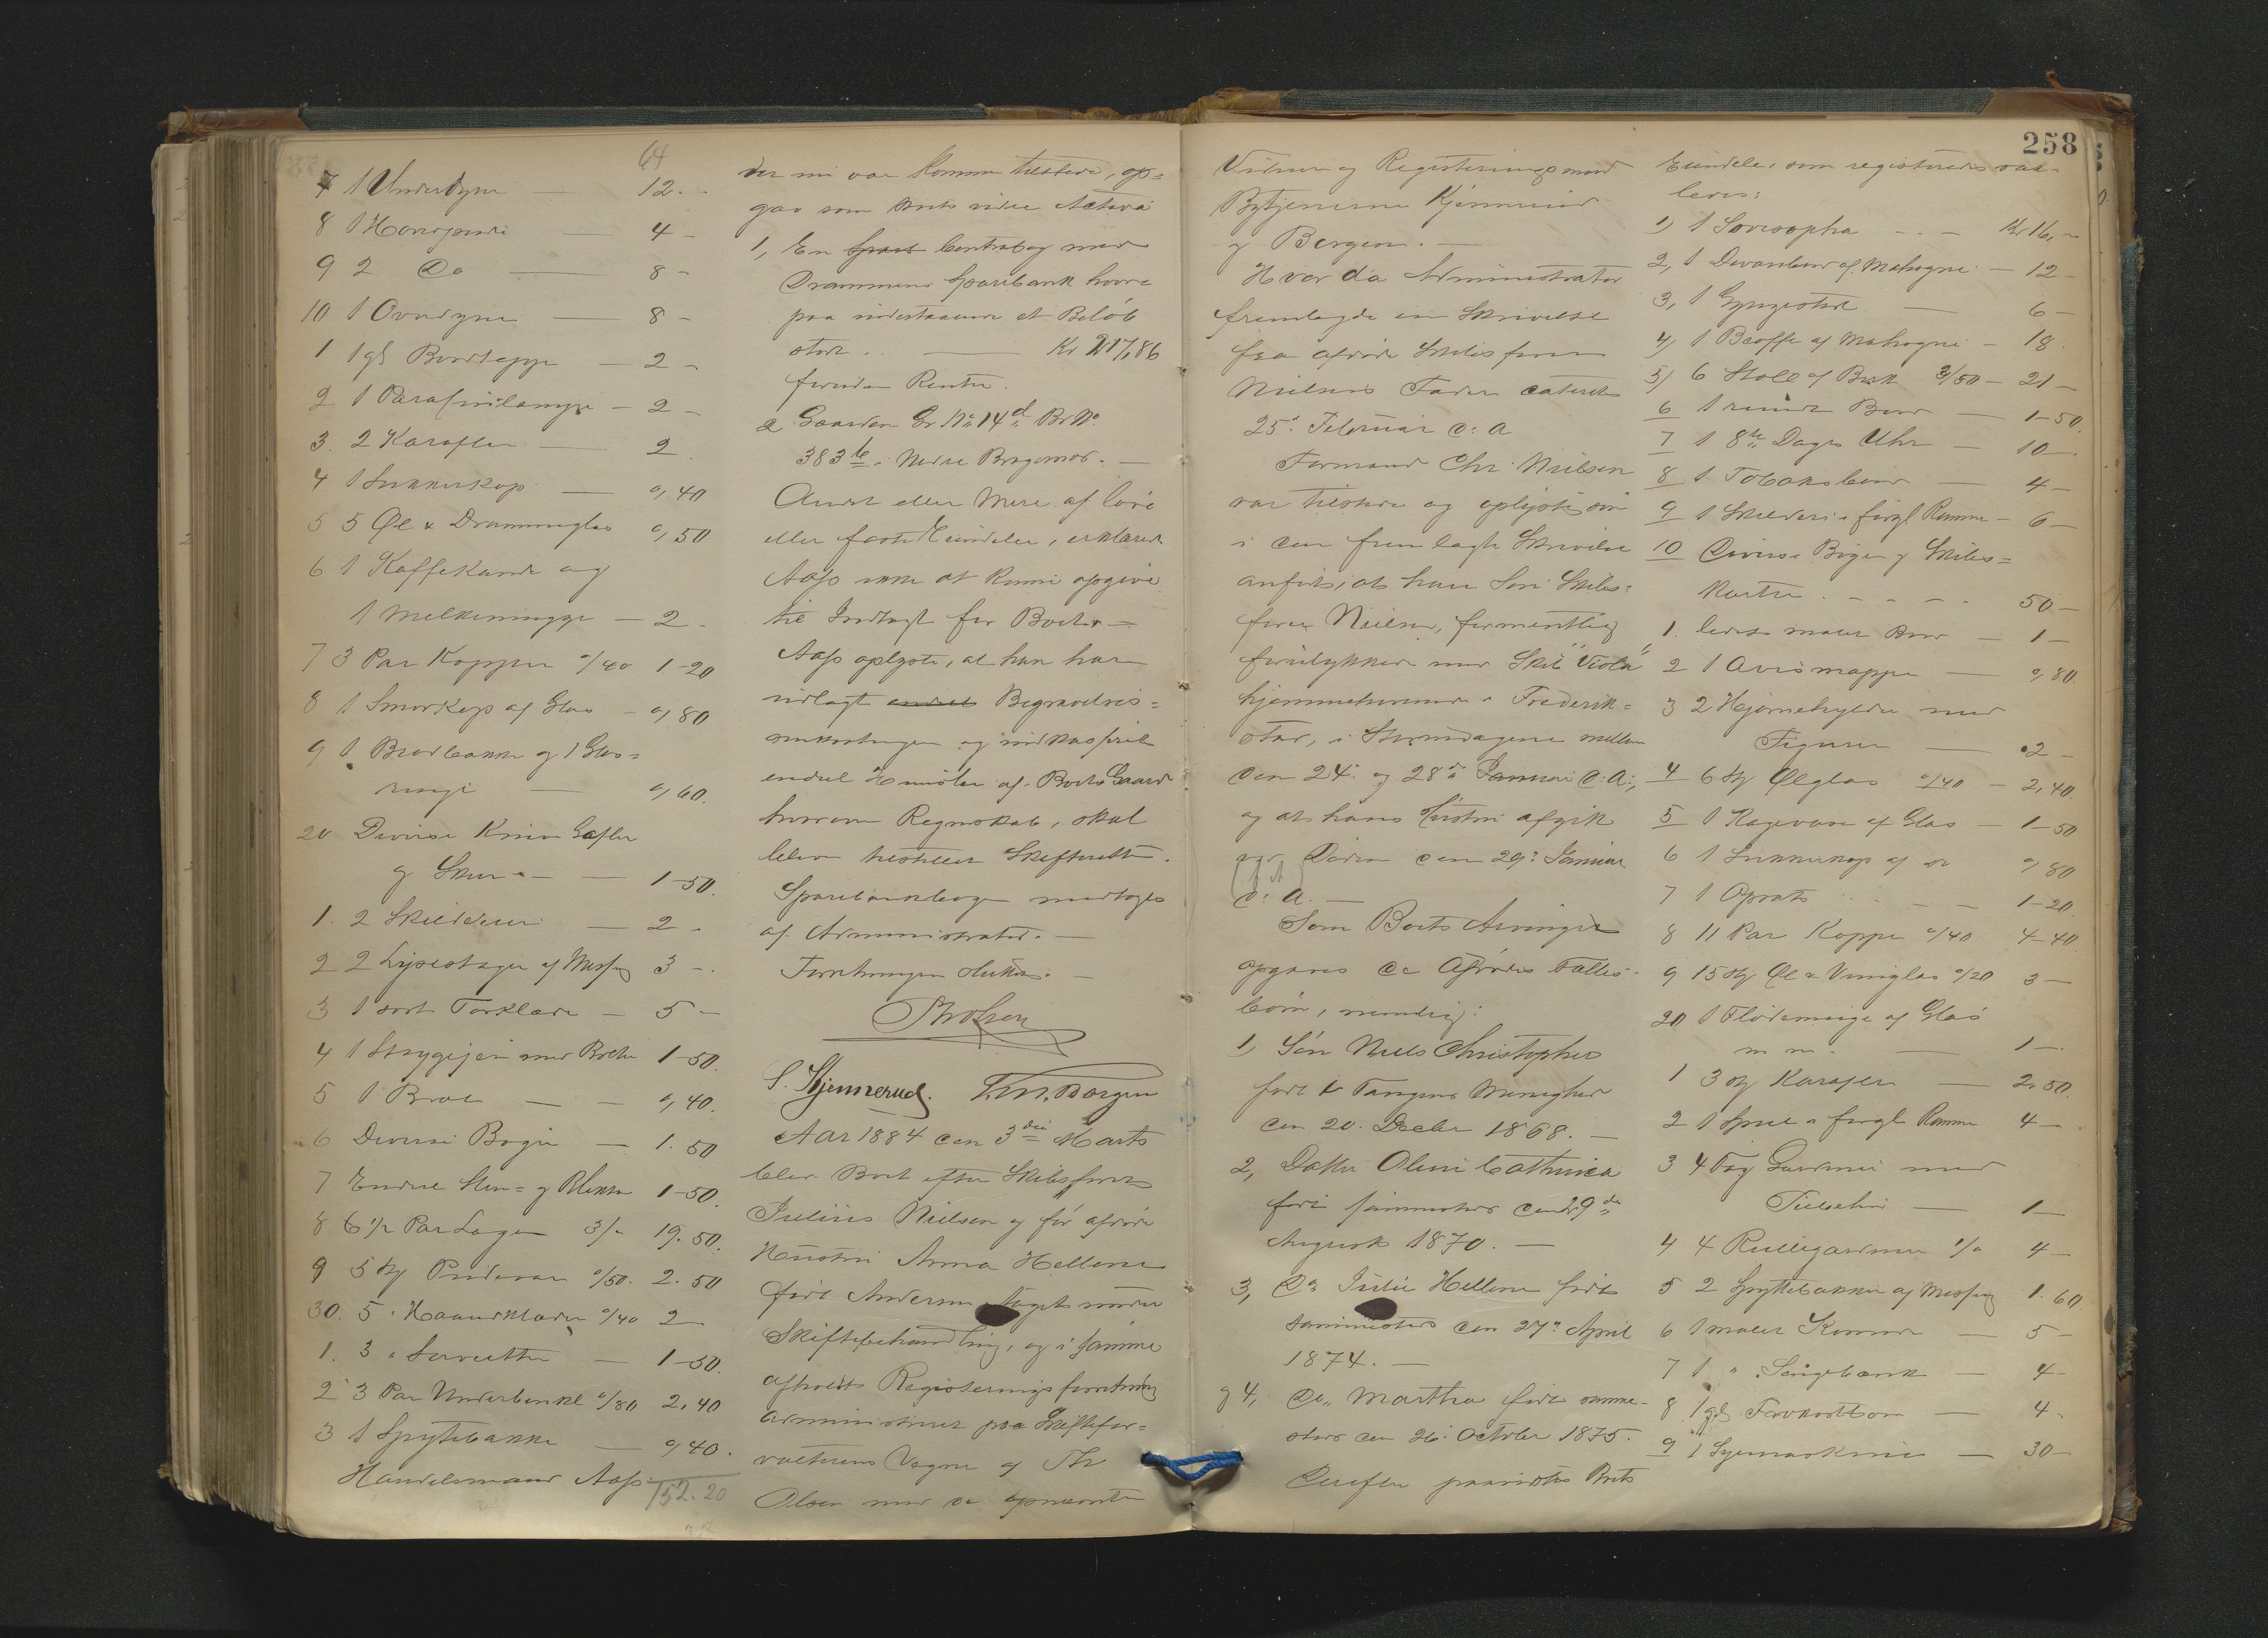 64
7 1 Underdyne — 12. -
8 1 Hovedpude — 4 -
9 2 Do — 8 -
10 1 Overdyne — 8 -
1 1 gl Bordteppe — 2 -
2 1 Parafinlampe — 2 -
3. 2 Karafler — 2.
4 1 Sukkerkop — 0,40
5 5 Øl & Dramme glas 0,50
6 1 Kaffekande og
1 Melkemugge — 2 -
7 3 Par Kopper 0/40 1-20
8 1 Smørkop af Glas — 0,80
9 1 Brødbakke og 1 Glas=
0,60.
20 Diverse Knive Gafler
og Skeer — 1-50.
1. 2 Skilderier — 2 -
2 2 Lysestager af Messing 3 -
3 1 sort Tørklæde — 5 -
4 1 Strygejern med Bolte 1-50.
5 1 — 0,40.
6 Diverse Bøger — 1.50
7 Endel Sten= og Blektøi 1-50.
8 6 1/2 Par Lagen 3/- 19.50.
9 5 St Pudevar 0/50. 2.50
30. 5 " Haandklæder 0/40 2
1. 3 " Servietter — 1-50.
2 3 Par Underbenkl 0/80 2,40
3 1 Spyttebakke — 0,40.
Handelsmand Aass 152.20
der nu var kommen tilstede, op=
gav som Boets videre Activa
1, En Contrabog med
Drammens Sparebank hvor=
paa indestaaende et Beløb
stort. — Kr 217,86
foruden Renter.
2 Gaarden Gr No 14d Br No
383 b i Nedre Bragernes. —
Andet eller Mere af løse
eller faste Eiendele, erklærede
Aass ikke at kunne opgive
til Indtægt for Boet. —
Aass oplyste, at han har
udlagt Begravelses=
omkostninger og indkasseret
endel Husleie af Boets Gaard
hvorom Regnskab, skal
blive tilstillet Skifteretten.
Sparebankbogen modtoges
af Administrator. —
Forretningen sluttet. —
Th Olsen
S. Kjennerud. Borgen
Aar 1884 den 3die Marts
blev Boet efter Skibsfører
Julius Nielsen og før afdøde
Hustru Anna Hellene
født Andersen taget under
Skiftebehandling, og i samme
afholdt Registreringsforretning
administreret paa Skiftefor=
valterens Vegne af Th
Olsen med de opnævnte
258
Vidner og Registreringsmænd
Bytjenerne Kjennerud
og Borgen. —
Hvor da Administrator
fremlagde en Skrivelse
fra afdøde Skibsfører
Nielsens Fader dateret
25. Februar d: A
Formand Chr. Nielsen
var tilstede og oplyste som
i den fremlagte Skrivelse
anført, at hans Søn Skibs=
fører Nielsen, formentlig
forulykkede med Skib "Viola"
hjemmehørende i Frederik=
stad, i Stormdagene mellem
den 24: og 28de Januar d: A:,
og at hans Hustru afgik
ved Døden den 29: Januar
d: A. —
Som Boets Arvinger
opgaves de Afdødes Fælles-
børn, nemlig:
1, Søn Niels Christopher
født i Tangens Menighed
den 20. Decbr 1868. —
2, Datter Oline Cathrine
født sammesteds den 29de
August 1870. —
3, Do Julie Hellene født
sammesteds den 27: April
1874. —
og 4, Do Martha født samme-
steds den 26: October 1875.
Derefter paavistes Boets
Eiendele, som registreredes saa-
ledes:
1, 1 Sovesopha — Kr 16, -
2, 1 Divanbord af Mahogni — 12 -
3, 1 Gyngestol — 6 -
4, 1 Boffe af Mahogni — 18.
5, 6 Stole af Birk 3/50 — 21 -
6 1 rundt Bord — 1-50.
7 1 8te Dages Uhr — 10 -
8 1 Tobaksbord — 4 -
9 1 Skilderi i forgl Ramme — 6 -
10 Diverse Bøger og Skibs=
karter — 50 -
1. 1 malet Bord — 1 -
2 1 Avismappe — 0,80
3 2 Hjørnehylder med
Figurer — 2 -
4 6 St Ølglas 0/40 — 2,40.
5 1 Kagevase af Glas — 1-50
6 1 Sukkerkop af do 0,80
7 1 Opsats — 1-20.
8 11 Par Kopper 0/40 4-40
9 15 St Øl & Vinglas 0/20 3 -
20, 1 Flødemugge af Glas
m m. — 1 -
1 3 St Karafler — 2,50.
2 1 Speil i forgl Ramme 4 -
3 4 Fag Gardiner med
Tilbehør — 1 -
4 4 Rullegardiner 1/- 4 -
5 2 Spyttebakker af Messing 1.60
6 1 malet Komode — 5 -
7 1 " Sengebænk — 4 -
8 1 gl — 4 -
9 1 Symaskine — 30 -